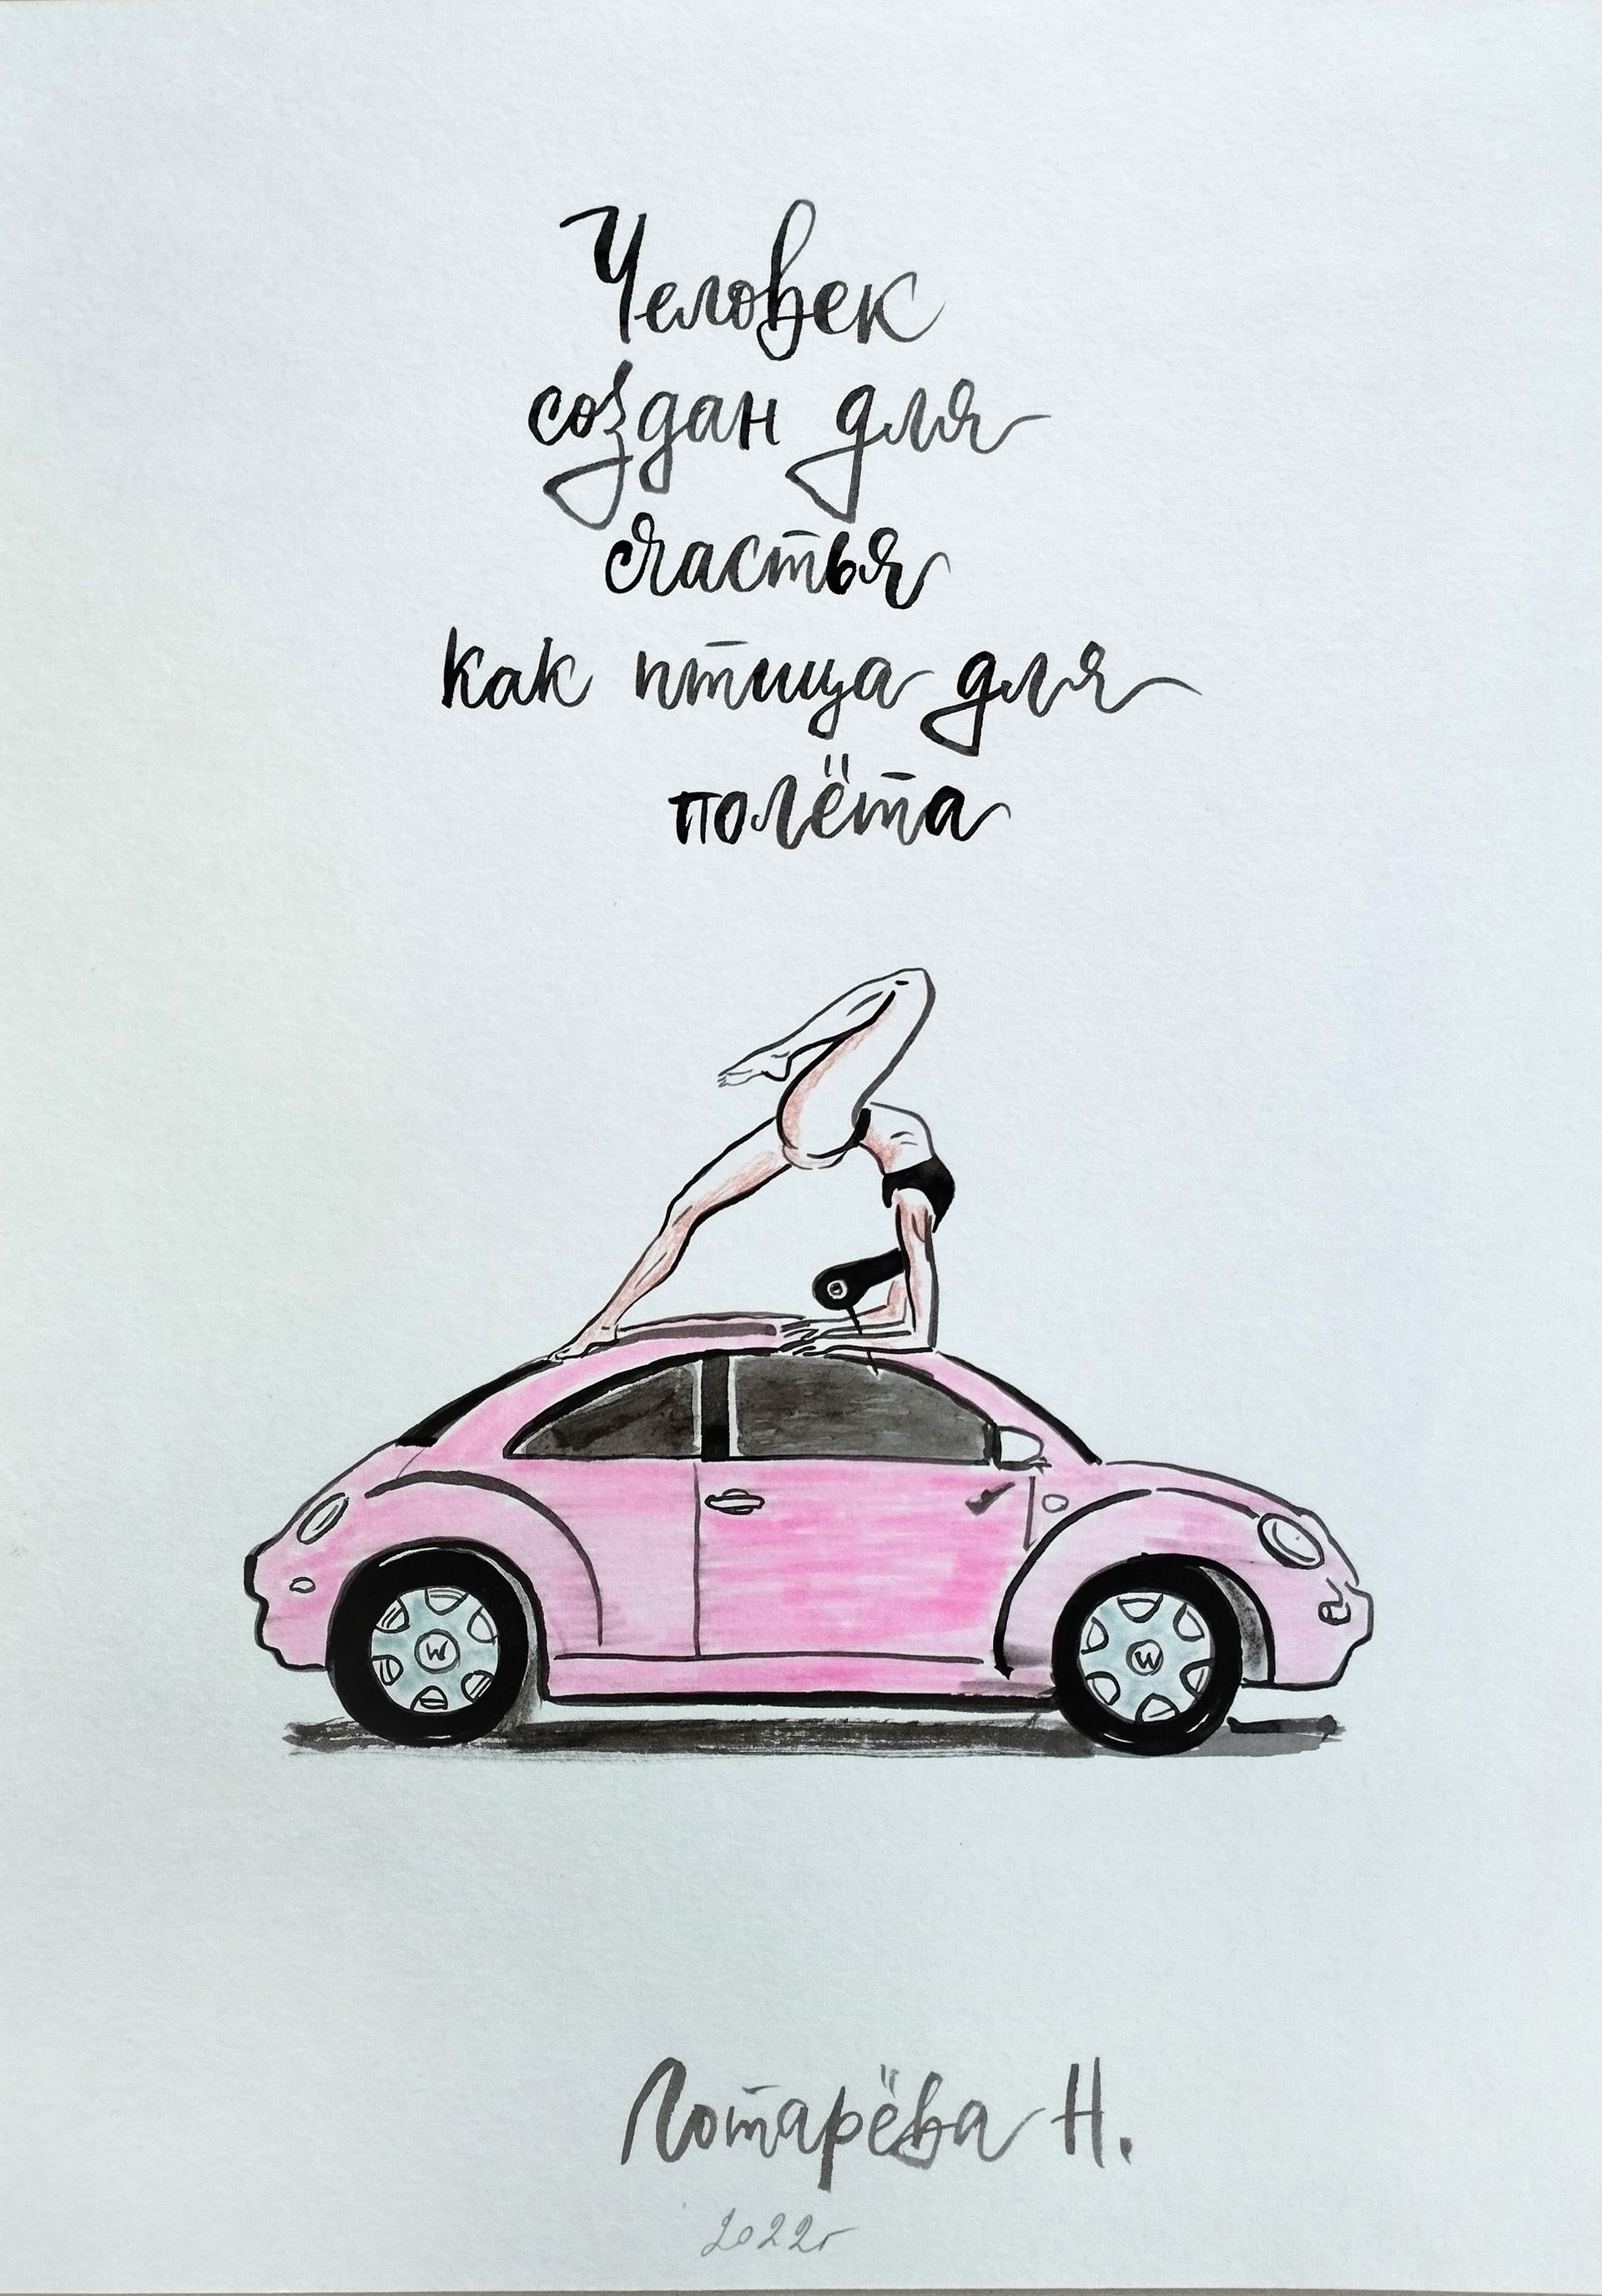 Человек
создан для
счастья
как птица для
полёта
W W
Лотарёва Н.
2022г